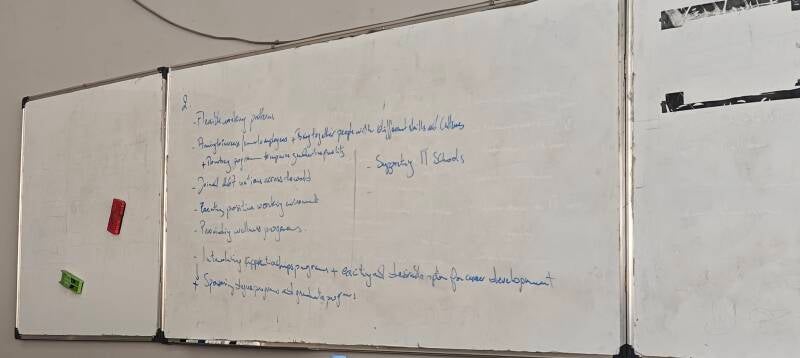 2
- Flexible working patterns
- employees + bring together people with different skills and cultures
+ program to improve gender inequality
- Supporting IT Schools
- across the world
- Creating positive working environment
- Providing wellness programs
- Introducing apprenticeships programs + exciting and desirable option for career development
+ Sponsoring degree programs and graduate programs